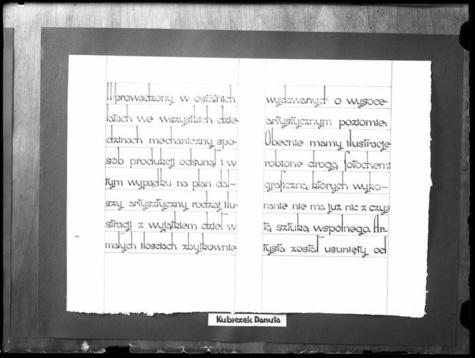 Wprowadzony w ostatnich
latach we wszystkich dzie-
dzinach mechaniczny spo-
sób produkcji odsunął i w
tym wypadku na plan dal-
szy artystyczny rodzaj ilu-
stracji z wyjątkiem dzieł w
małych ilościach zbytkownie
wydawanych o wysoce-
artystycznym poziomie.
Obecnie mamy ilustracje
robione drogą fotochemi
graficzną, których wyko-
nanie nie ma już nic z czys
tą sztuką wspólnego. Ar-
tysta został usunięty od
Kubiczek Danuta